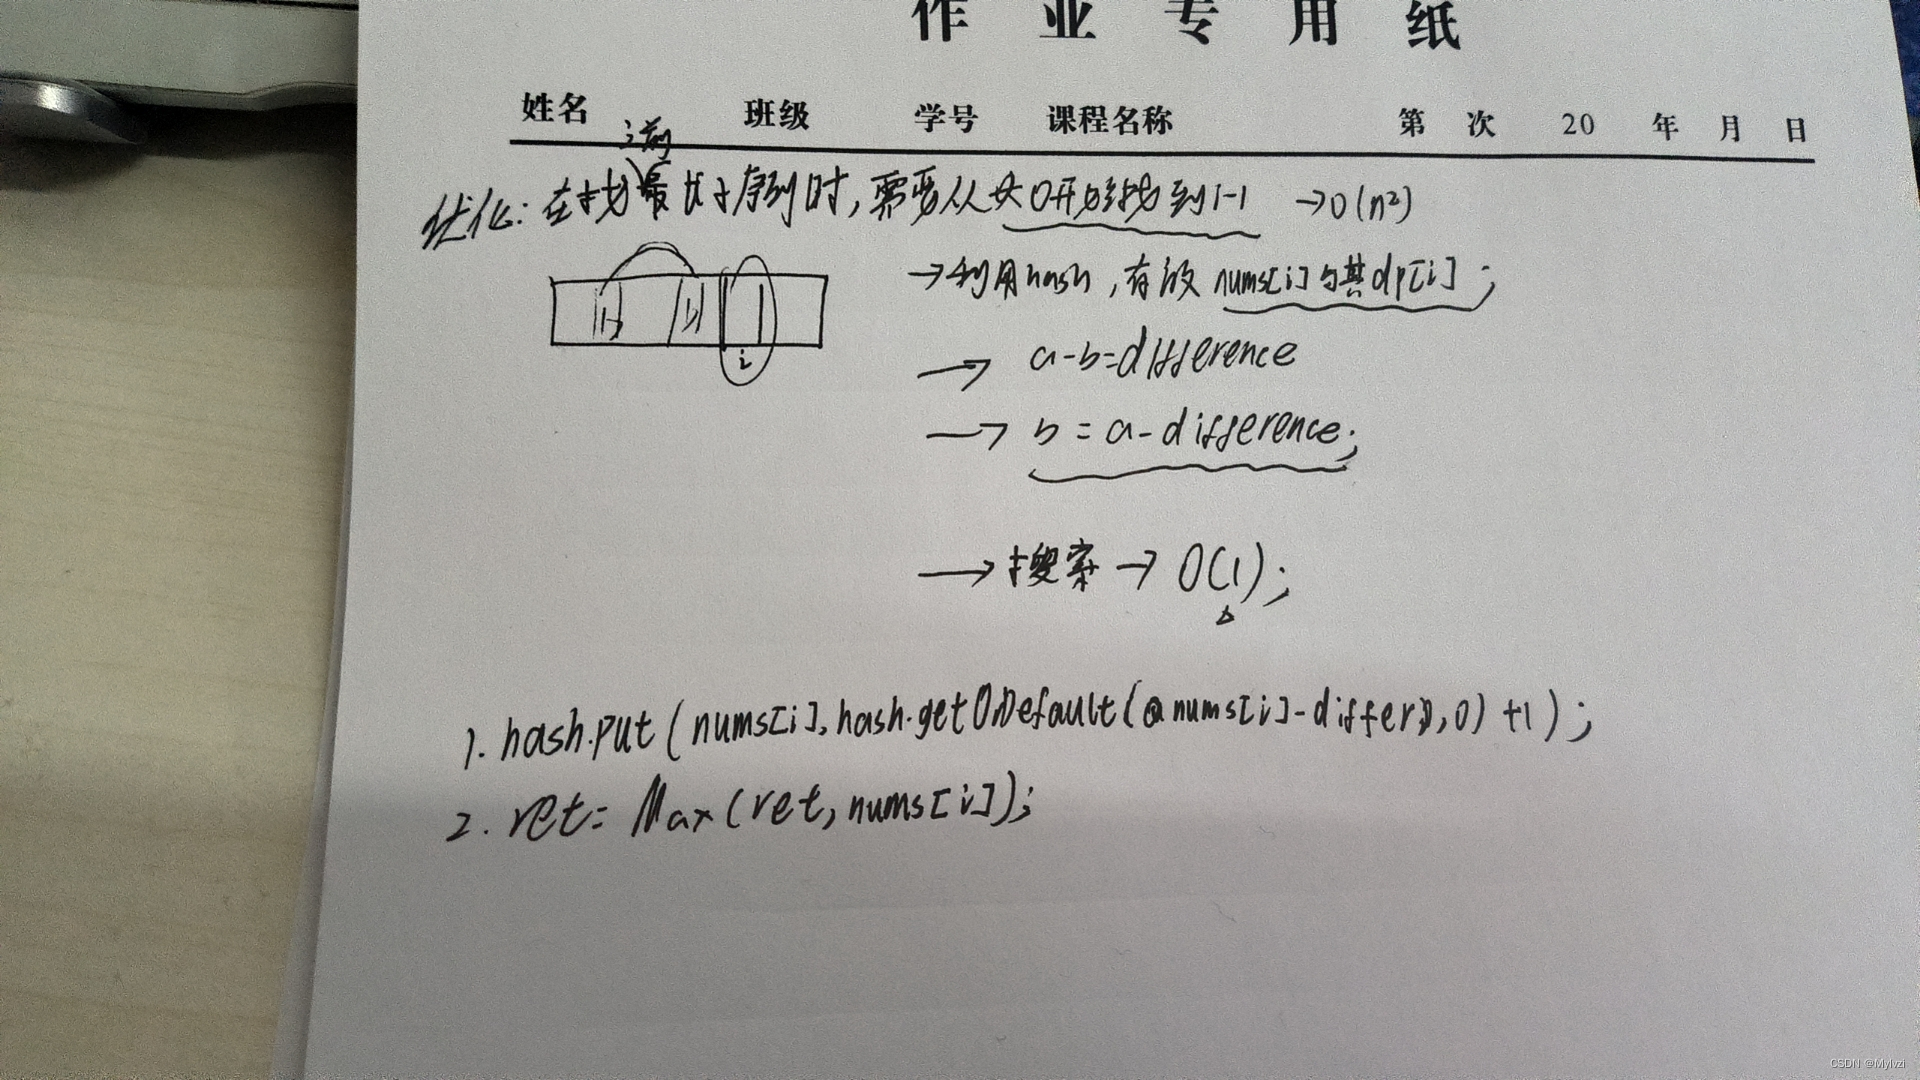 作业专用纸
姓名 班级 学号 课程名称 第 次 20 年 月 日
i前
优化:在找最长子序列时,需要从头0开始找到i-1 →O(n²)
→利用hash,存放nums[i]与其dp[i];
b b i
→ a-b=difference
→ b=a-difference;
→搜索→O(1);
1. hash.put(nums[i],hash.getOrDefault(nums[i]-differ,0)+1);
2. ret=Max(ret,nums[i]);
CSDN @Mylvzi